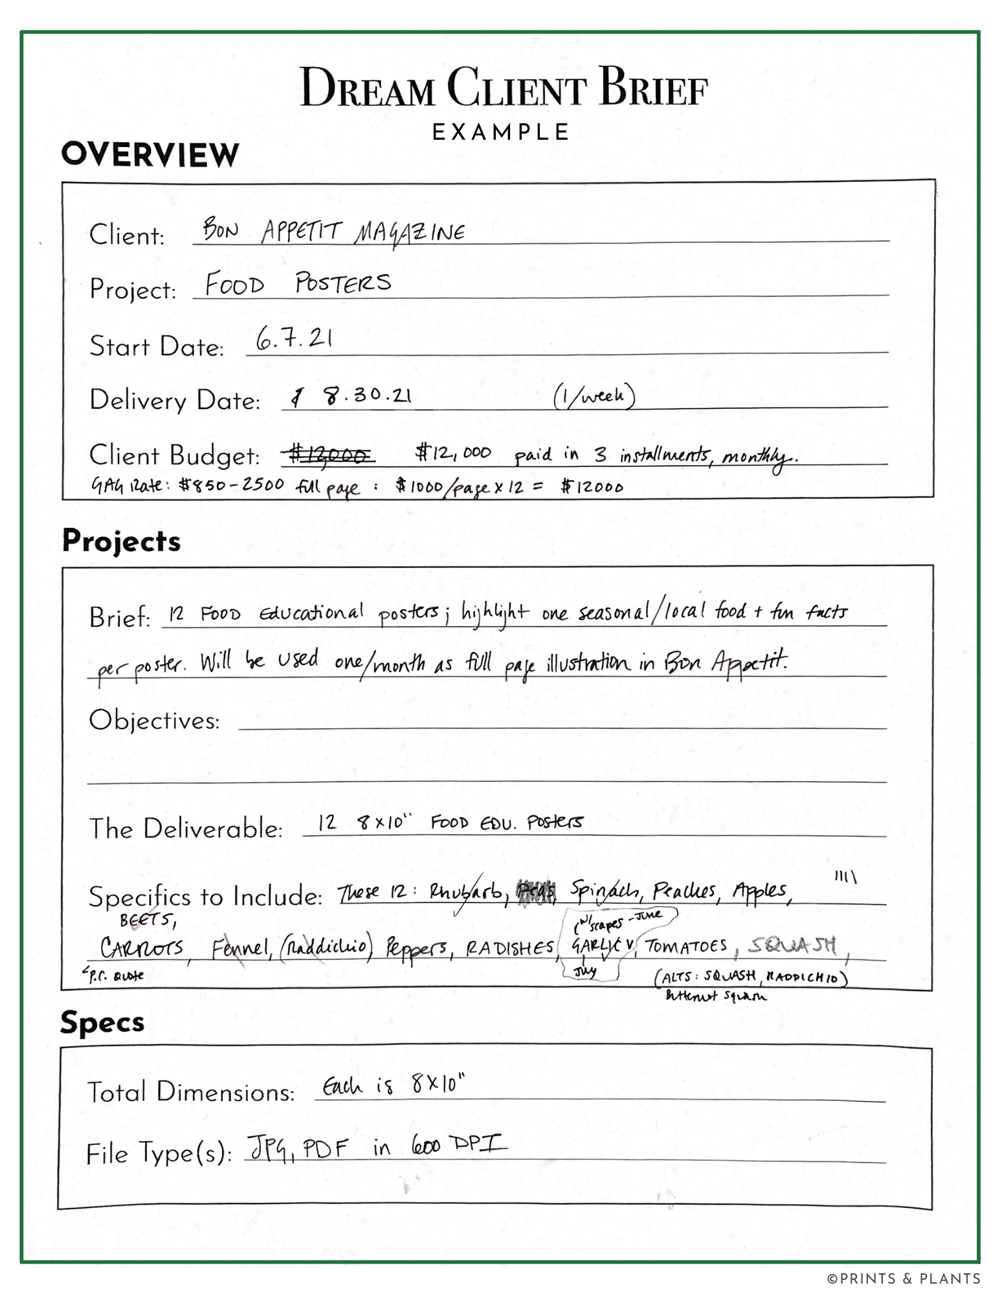 DREAM CLIENT BRIEF
EXAMPLE
OVERVIEW
Client: BON APPETIT MAGAZINE
Project: FOOD POSTERS
Start Date: 6.7.21
Delivery Date: 8.30.21 (1/week)
Client Budget: $12,000 $12,000 paid in 3 installments, monthly.
GAG Rate: $850-2500 full page : $1000/page x 12 = $12000
Projects
Brief: 12 FOOD Educational posters; highlight one seasonal/local food + fun facts
per poster. Will be used one/month as full page illustration in Bon Appetit.
Objectives:
The Deliverable: 12 8x10" FOOD EDU. Posters
Specifics to Include: These 12: Rhubarb, Peas, Spinach, Peaches, Apples,
BEETS,
(w/scapes - June
CARROTS, Fennel, (Raddichio) Peppers, RADISHES, GARLIC, TOMATOES, SQUASH,
P.C. QUOTE
July
(ALTS: SQUASH, RADDICHIO)
Butternut Squash
Specs
Total Dimensions: Each is 8x10"
File Type(s): JPG, PDF in 600 DPI
©PRINTS & PLANTS